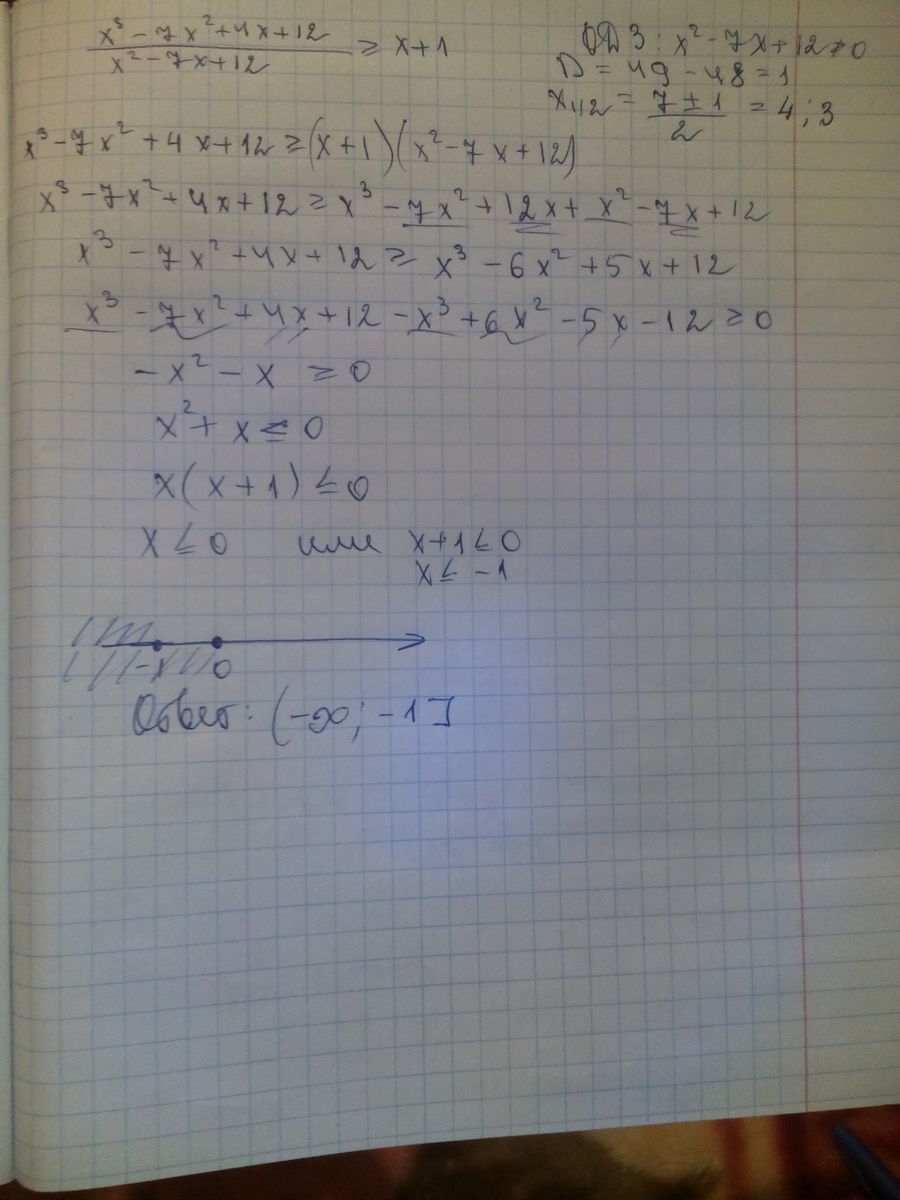 x³ - 7x² + 4x + 12 / x² - 7x + 12 ≥ x + 1
ОДЗ: x² - 7x + 12 ≠ 0
D = 49 - 48 = 1
x₁,₂ = 7 ± 1 / 2 = 4; 3
x³ - 7x² + 4x + 12 ≥ (x + 1)(x² - 7x + 12)
x³ - 7x² + 4x + 12 ≥ x³ - 7x² + 12x + x² - 7x + 12
x³ - 7x² + 4x + 12 ≥ x³ - 6x² + 5x + 12
x³ - 7x² + 4x + 12 - x³ + 6x² - 5x - 12 ≥ 0
-x² - x ≥ 0
x² + x ≤ 0
x(x + 1) ≤ 0
x ≤ 0 или x + 1 ≤ 0
x ≤ -1
-1 0
Ответ: (-∞; -1]